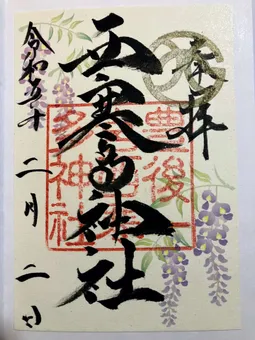 奉拝
西寒多神社
豊後
多神社
令和五年二月二日